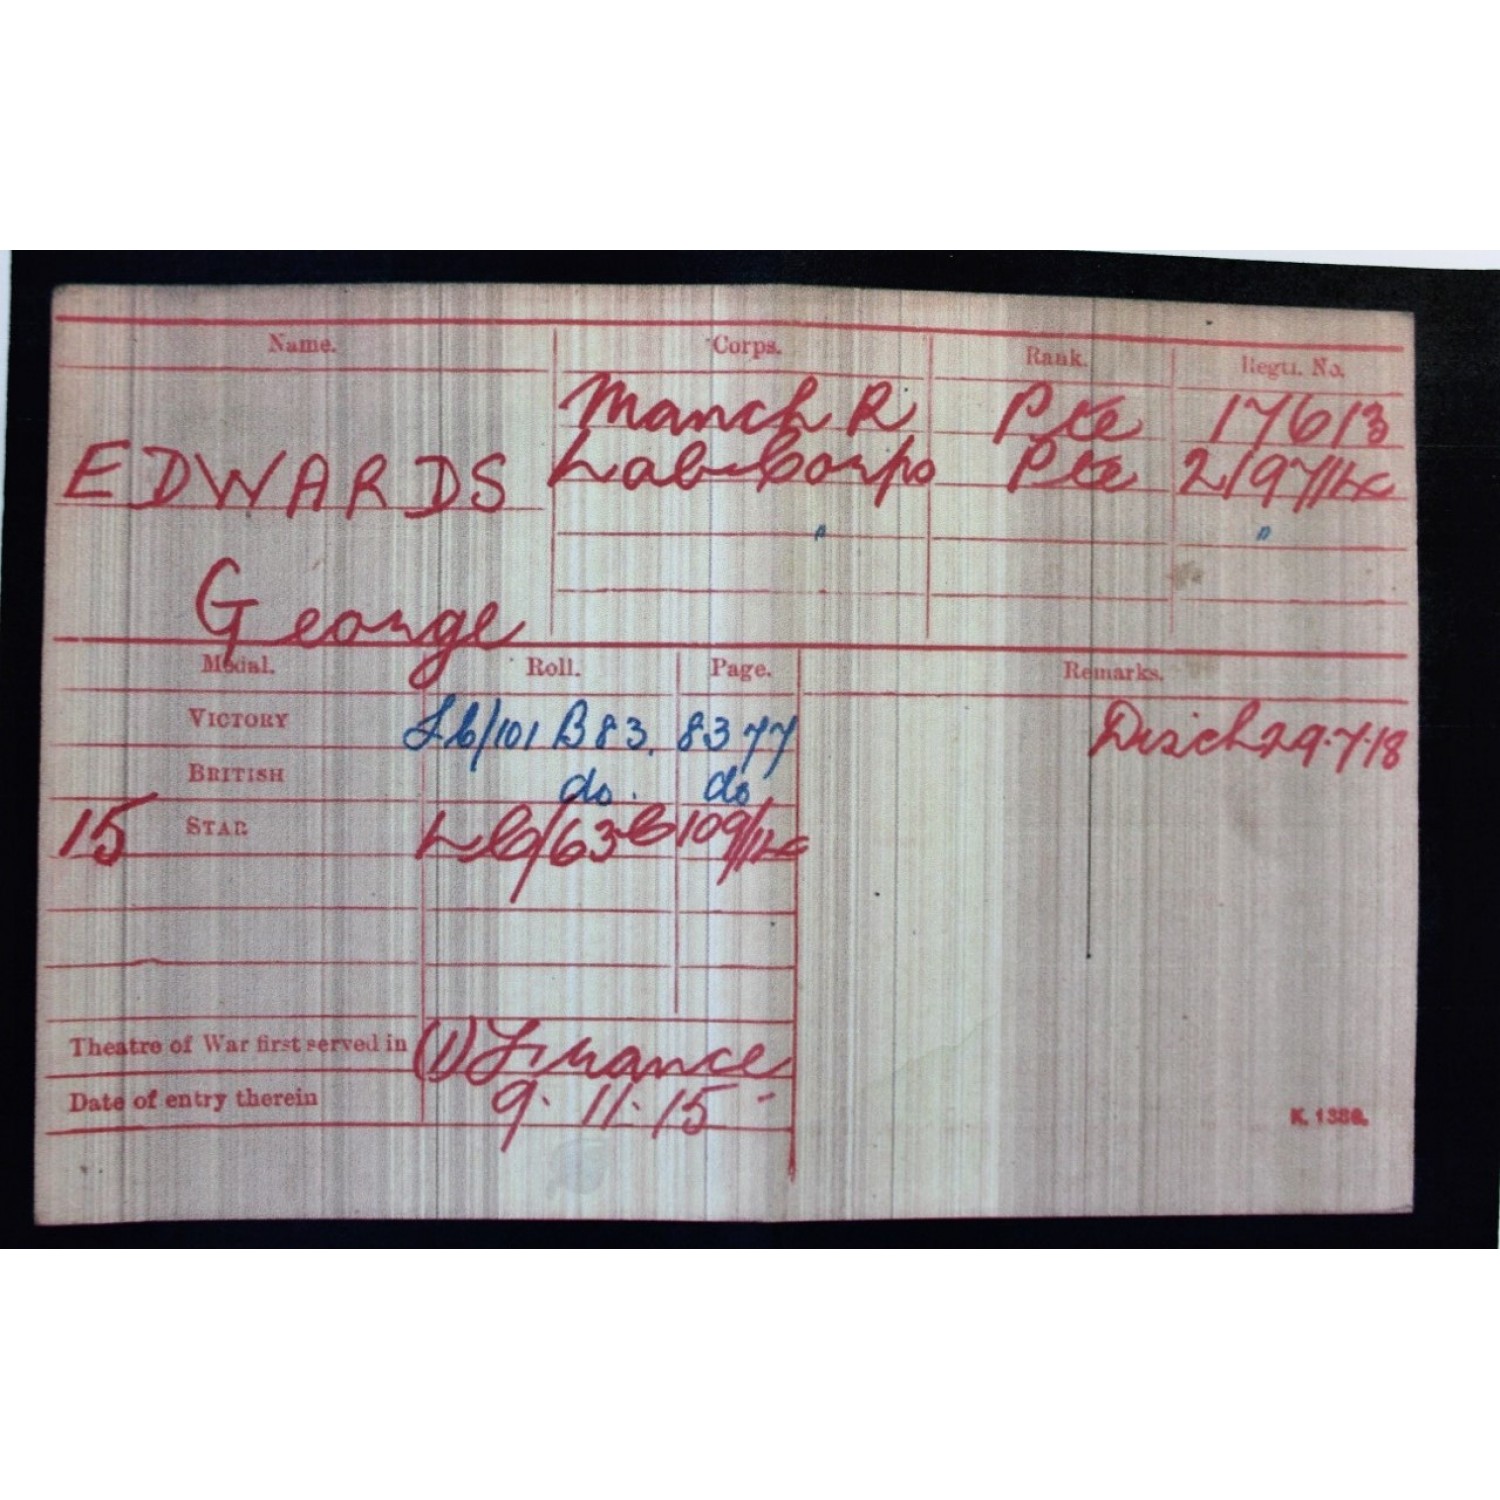 Name. Corps. Rank. Regtl. No.
Manch R Pte 17613
EDWARDS Lab Corps Pte 21971
" "
George
Medal. Roll. Page. Remarks.
VICTORY Lb/101 B83. 8377 Disch 29.7.18
BRITISH do. do
15 STAR 109
Theatre of War first served in (1) France
Date of entry therein 9.11.15
K. 1380.